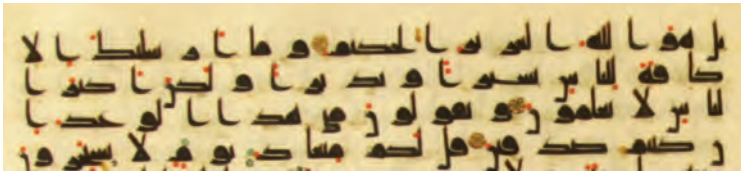 بل هو الله العزيز الحكيم وما أرسلنك إلا
كافة للناس بشيرا ونذيرا ولكن أكثر ا
لناس لا يعلمون ويقولون متى هذا الوعد إن
كنتم صدقين قل لكم ميعاد يوم لا تستخرون